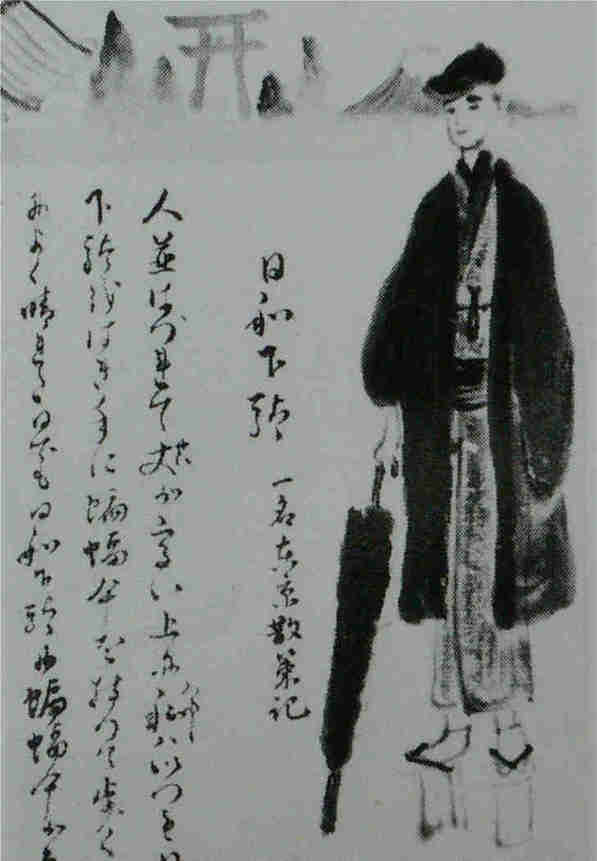 日和下駄 一名東京散策記
人並はづれて丈が高い上に私はいつも日
下駄をはき手に蝙蝠傘を持つて歩く
によく晴れた日でも日和下駄に蝙蝠傘